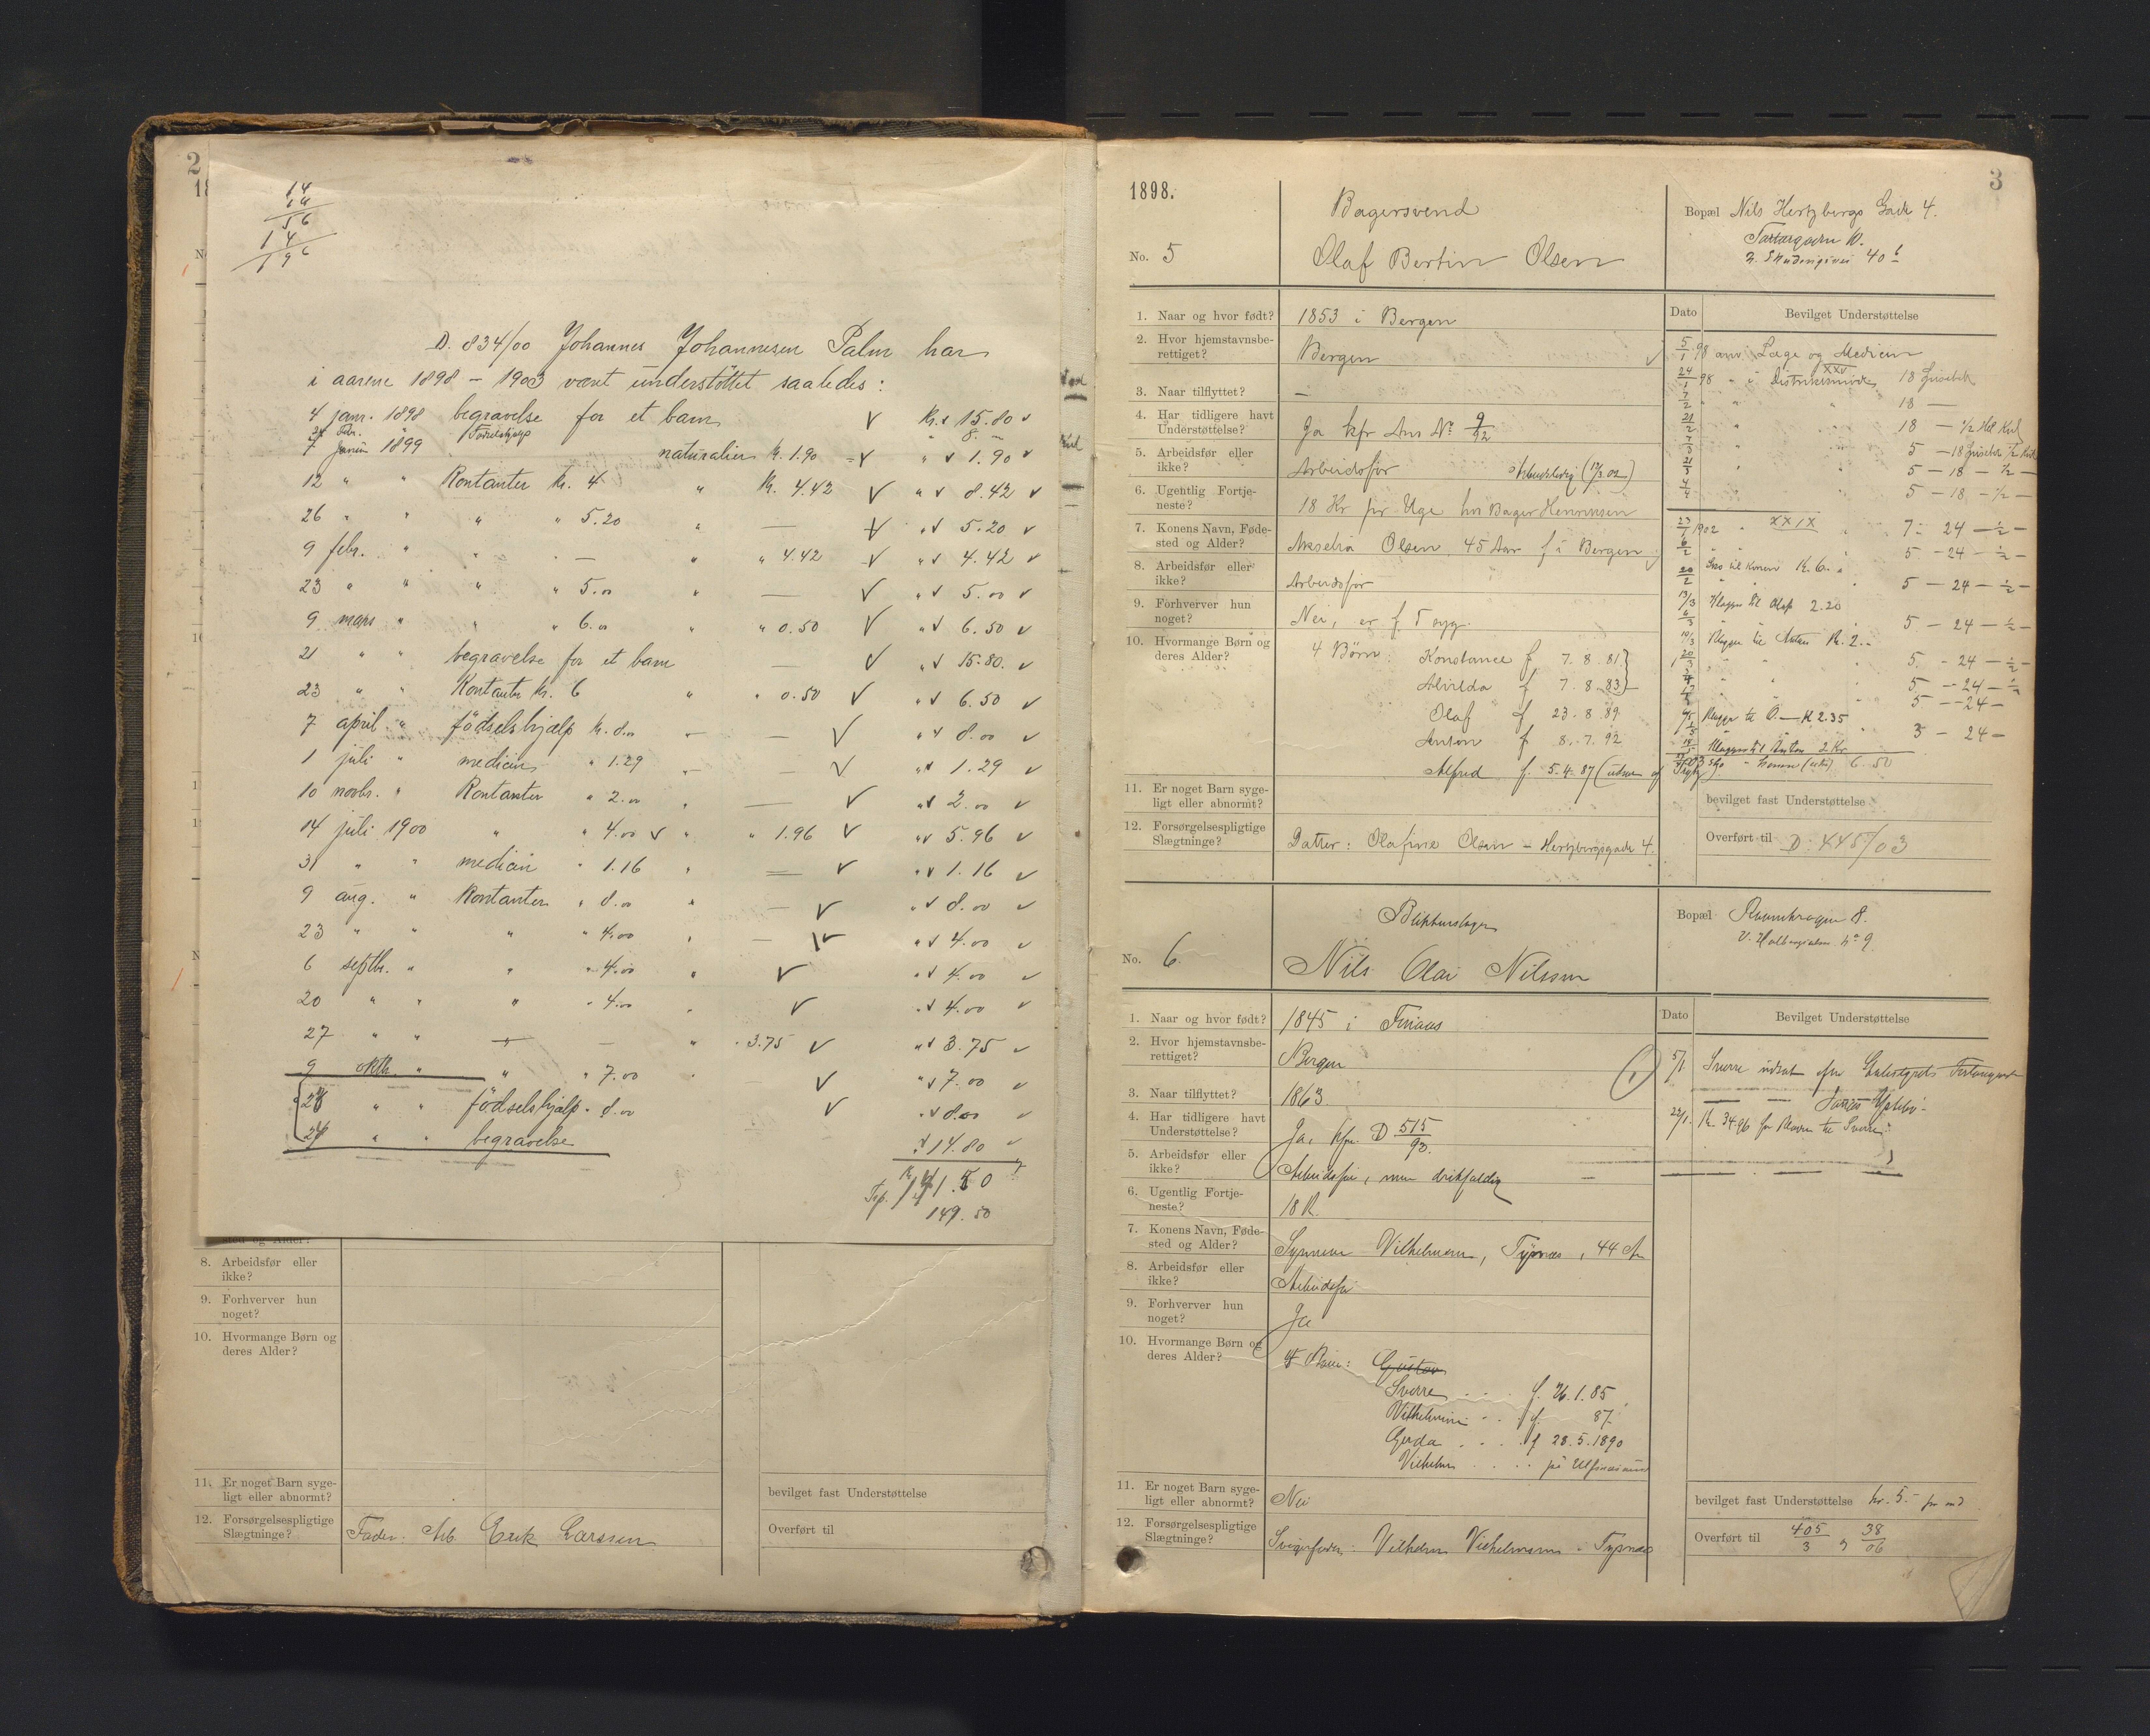 2
14
14
56
14
196
D. 834/00 Johannes Johannesen Palm har
i aarene 1898 – 1903 været understöttet saaledes:
4 janr. 1898 begravelse for et barn √ Kr. √ 15.80 √
24 Febr. " Fødselshjælp " 8. –
7 Janűar 1899 naturalier k. 1.90 √ " √ 1.90 √
12 " " Kontanter k. 4 " k. 4.42 √ " √ 8.42 √
26 " " " " 5.20 " — √ " √ 5.20 √
9 febr. " " " — " " 4.42 √ " √ 4.42 √
23 " " " " 5.00 " — √ " √ 5.00 √
9 mars " " " 6.00 " " 0.50 √ " √ 6.50 √
21 " " begravelse for et barn — √ " √ 15.80. √
23 " " Kontanter k. 6 " " 0.50 √ " √ 6.50 √
7 april " födselshjælp k. 8.00 — — √ " √ 8.00 √
1 juli " medicin " 1.29 — — √ " √ 1.29 √
10 novbr. " Kontanter " 2.00 " — √ " √ 2.00 √
14 juli 1900 " " 4.00 √ " " 1.96 √ " √ 5.96 √
31 " " medicin " 1.16 " — √ " √ 1.16 √
9 aug. " Kontanter " 8.00 " — √ " √ 8.00 √
23 " " " " 4.00 " — √ " √ 4.00 √
6 septbr. " " " 4.00 " √ " √ 4.00 √
20 " " " " 4.00 " √ " √ 4.00 √
27 " " — — " " 3.75 √ " √ 3.75 √
9 oktb. " " " 7.00 " √ " √ 7.00 √
24 " " födselshjælp " 8.00 √ " √ 8.00 √
24 " " begravelse √ 14.80 √
141.50
149.50
sted og Alder?
8. Arbeidsfør eller
ikke?
9. Forhverver hun
noget?
10. Hvormange Børn og
deres Alder?
11. Er noget Barn syge-
ligt eller abnormt?
12. Forsørgelsespligtige
Slægtninge? Fader: Arb. Erik Larssen
bevilget fast Understøttelse
Overført til
3
1898.
No. 5
Bagersvend
Olaf Bertin Olsen
Bopæl Nils Hertzbergs Gade 4.
40 b
1. Naar og hvor født? 1853 i Bergen
2. Hvor hjemstavnsbe-
rettiget? Bergen
3. Naar tilflyttet? —
4. Har tidligere havt
Understøttelse? Ja kfr Ans No 9/92
5. Arbeidsfør eller
ikke? Arbeidsfør Arbeidsledig (17/3.02)
6. Ugentlig Fortje-
neste? 18 Kr pr Uge hos Bager Henriksen
7. Konens Navn, Føde-
sted og Alder? Olsen 45 Aar f i Bergen
8. Arbeidsfør eller
ikke? Arbeidsfør
9. Forhverver hun
noget? Nei, er f T syg.
10. Hvormange Børn og
deres Alder? 4 Børn: Konstance f 7.8.81
Alvilda f 7.8.83
Olaf f 23.8.89
Anton f 8.7.92
Alfred f. 5.4.87
11. Er noget Barn syge-
ligt eller abnormt?
12. Forsørgelsespligtige
Slægtninge? Datter: Olafine Olsen – Hertzbergsgade 4.
Dato Bevilget Understøttelse
5/1 98 anv. Læge og Medicin
24/1 98 " i Distriktsmøde XXV 18
7/2 " " 18 —
21/2 " " 18 — 1/2 Hd Kul
7/3 " 5 — 18 1/2
21/3 " 5 — 18 — 1/2 —
4/4 " 5 — 18 — 1/2 —
23/1 1902 " XXIX " 7 — 24 — 1/2 —
6/2 " 5 — 24 — 1/2 —
Sko til Konen K. 6.
20/2 5 — 24 — 1/2 —
13/3 Klæger til Olaf 2.20
6/3 5 — 24 — 1/2 —
Klæger til Anton K. 2.–
20/3 5 — 24 — 1/2 —
5 — 24 — 1/2
5 — 24 —
Klæger til O. — K 2.35
3 — 24 —
Klæger til Anton 2 Kr
6.50
bevilget fast Understøttelse
Overført til D. 445/03
No. 6
Blikkenslager
Nils Olai Nilssen
Bopæl 8.
No 9
1. Naar og hvor født? 1845 i Finaas
2. Hvor hjemstavnsbe-
rettiget? Bergen
3. Naar tilflyttet? 1863
4. Har tidligere havt
Understøttelse? Ja, kfr. D 515/93.
5. Arbeidsfør eller
ikke? Arbeidsfør, men drikfældig
6. Ugentlig Fortje-
neste? 18 K.
7. Konens Navn, Føde-
sted og Alder? Synneve Vilhelmsen, Tysnæs, 44 Aar
8. Arbeidsfør eller
ikke? Arbeidsfør
9. Forhverver hun
noget? Ja
10. Hvormange Børn og
deres Alder? 4 Børn: Gustav
Sverre f. 26.1.85
Vilhelmine f. 87.
Gerda f 28.5.1890
Vilhelm på Ulfsnæsøen
11. Er noget Barn syge-
ligt eller abnormt? Nei
12. Forsørgelsespligtige
Slægtninge? Svigerfader: Vilhelm Vilhelmsen – Tysnæs
Dato Bevilget Understøttelse
5/1 Sverre udsat
22/1. K. 34.96 for Klæder til Sverre
bevilget fast Understøttelse kr. 5.– pr md
Overført til 405/3 og 38/06